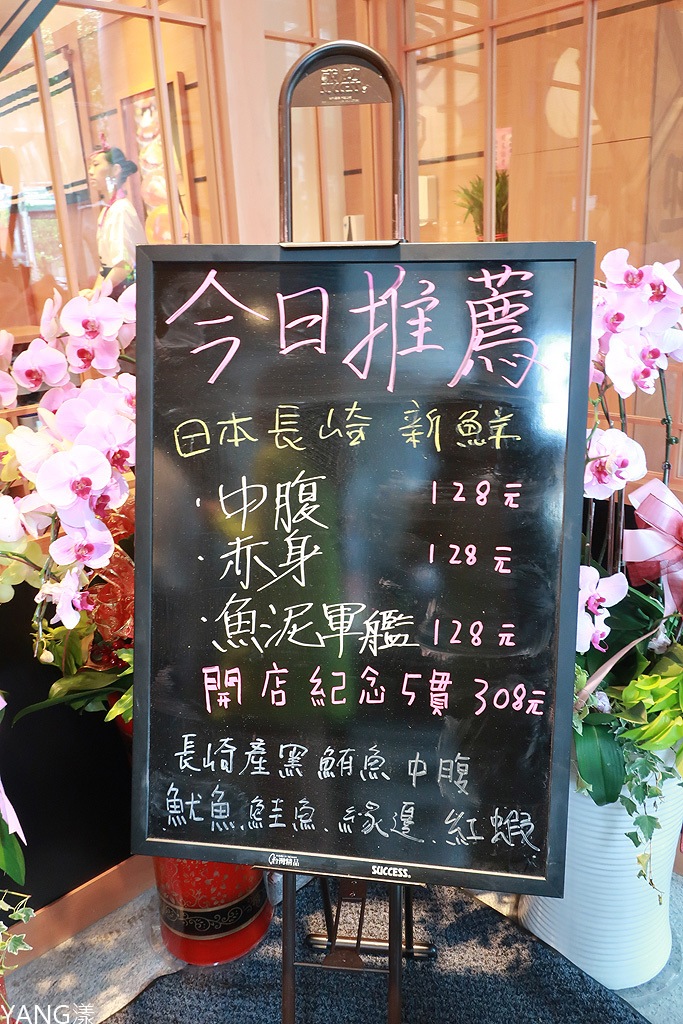 今日推薦
日本長崎 新鮮
·中腹 128元
·赤身 128元
·魚泥軍艦 128元
開店紀念5貫 308元
長崎產黑鮪魚中腹
魷魚.鮭魚.緣邊.紅蝦
台灣精品 SUCCESS.
YANG漾